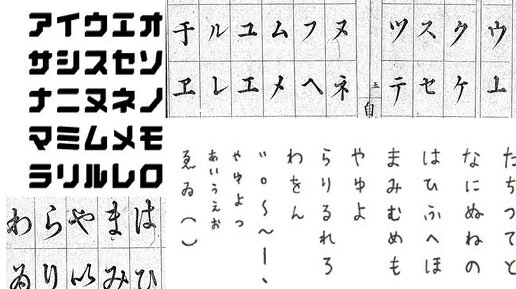 アイウエオ
サシスセソ
ナニヌネノ
マミムメモ
ラリルレロ
ウ
クケ
スセ
ツテ
五
自
ヌネ
フヘ
ムメ
ユエ
ルレ
于ヱ
たちつてと
なにぬねの
はひふへほ
まみむめも
やゆよ
らりるれろ
わをん
゛゜〜〜ー、
ゃゅょっ
ぁぃぅぇぉ
ゑゐ()
はひ
まみ
や
らり
わゐ